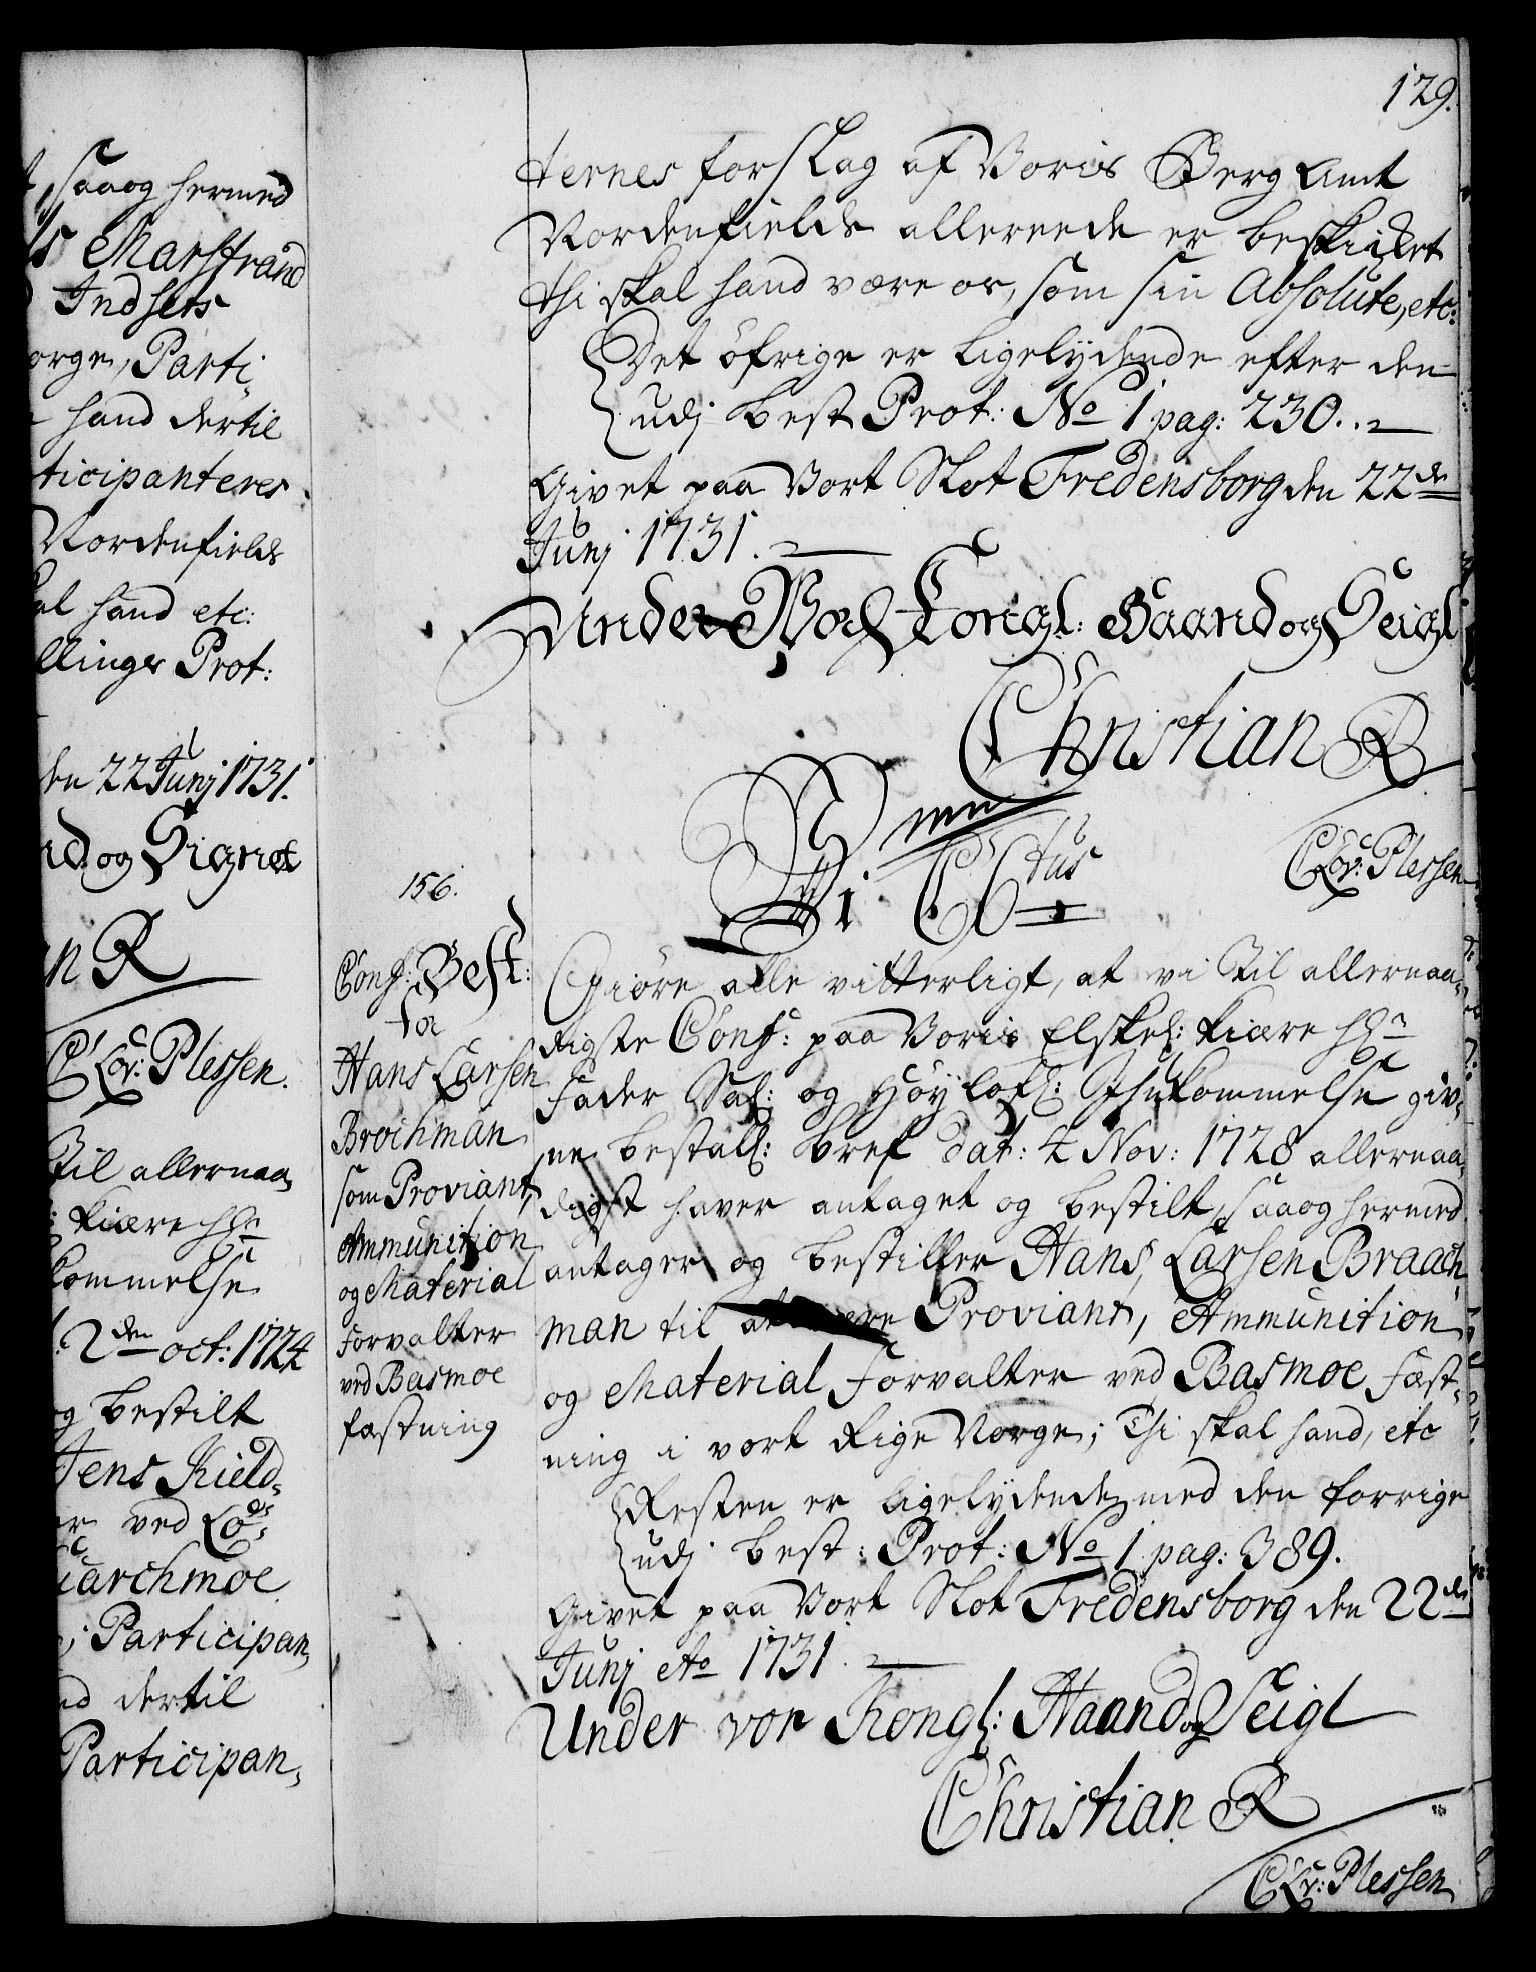 129.
saaog hermed
Marstrand
Indsets
orge, Parti,
hand dertil
ticipanteres
Nordenfields
al hand etc:
llings Prot:
den 22 Junj 1731.
nd og Signet
an R
C Lov: Plessen.
Til allernaa,
kiære Hr
kommelse
2den oct: 1724
og bestilt
Jens Kield,
er ved
archmoe
Participan,
nd dertil
Participan,
ternes forslag af Voris Berg Amt
Nordenfields allereede er beskicket
thi skal hand være os, som sin Absolute, etc:
Det öfrige er ligelydende efter den
udj best Prot: No 1 pag: 230..
Givet paa Vort Slot Fredensborg den 22de
Junj 1731.
Under Vor Kongl: Haand og Seigl
Christian R
C Lov: Plessen
156.
Conf: Best:
for
Hans Larsen
Brochman
som Proviant,
Ammunition
og Material
Forvalter
ved Basmoe
fæstning
Vi C 6tus
Giöre alle vitterligt, at vi Til allernaa,
digste Conf: paa Voris Elskel: kiære Hr
Fader Sal: og Höylofl: Ihukommelse giv,
ne bestall: bref dat: 4 Nov: 1728 allernaa,
digst haver antaget og bestilt, saaog hermed
antager og bestiller Hans Larsen Braach,
man til at være Proviant, Ammunition
og Material Forvalter ved Basmoe Fæst,
ning i vort Rige Norge; Thi skal hand, etc
Resten er ligelydende med den forrige
udj best: Prot: No 1 pag: 389.
Givet paa Vort Slot Fredensborg den 22de
Junj Ao 1731.
Under vor Kongl: Haand og Seigl
Christian R
C Lv: Plessen